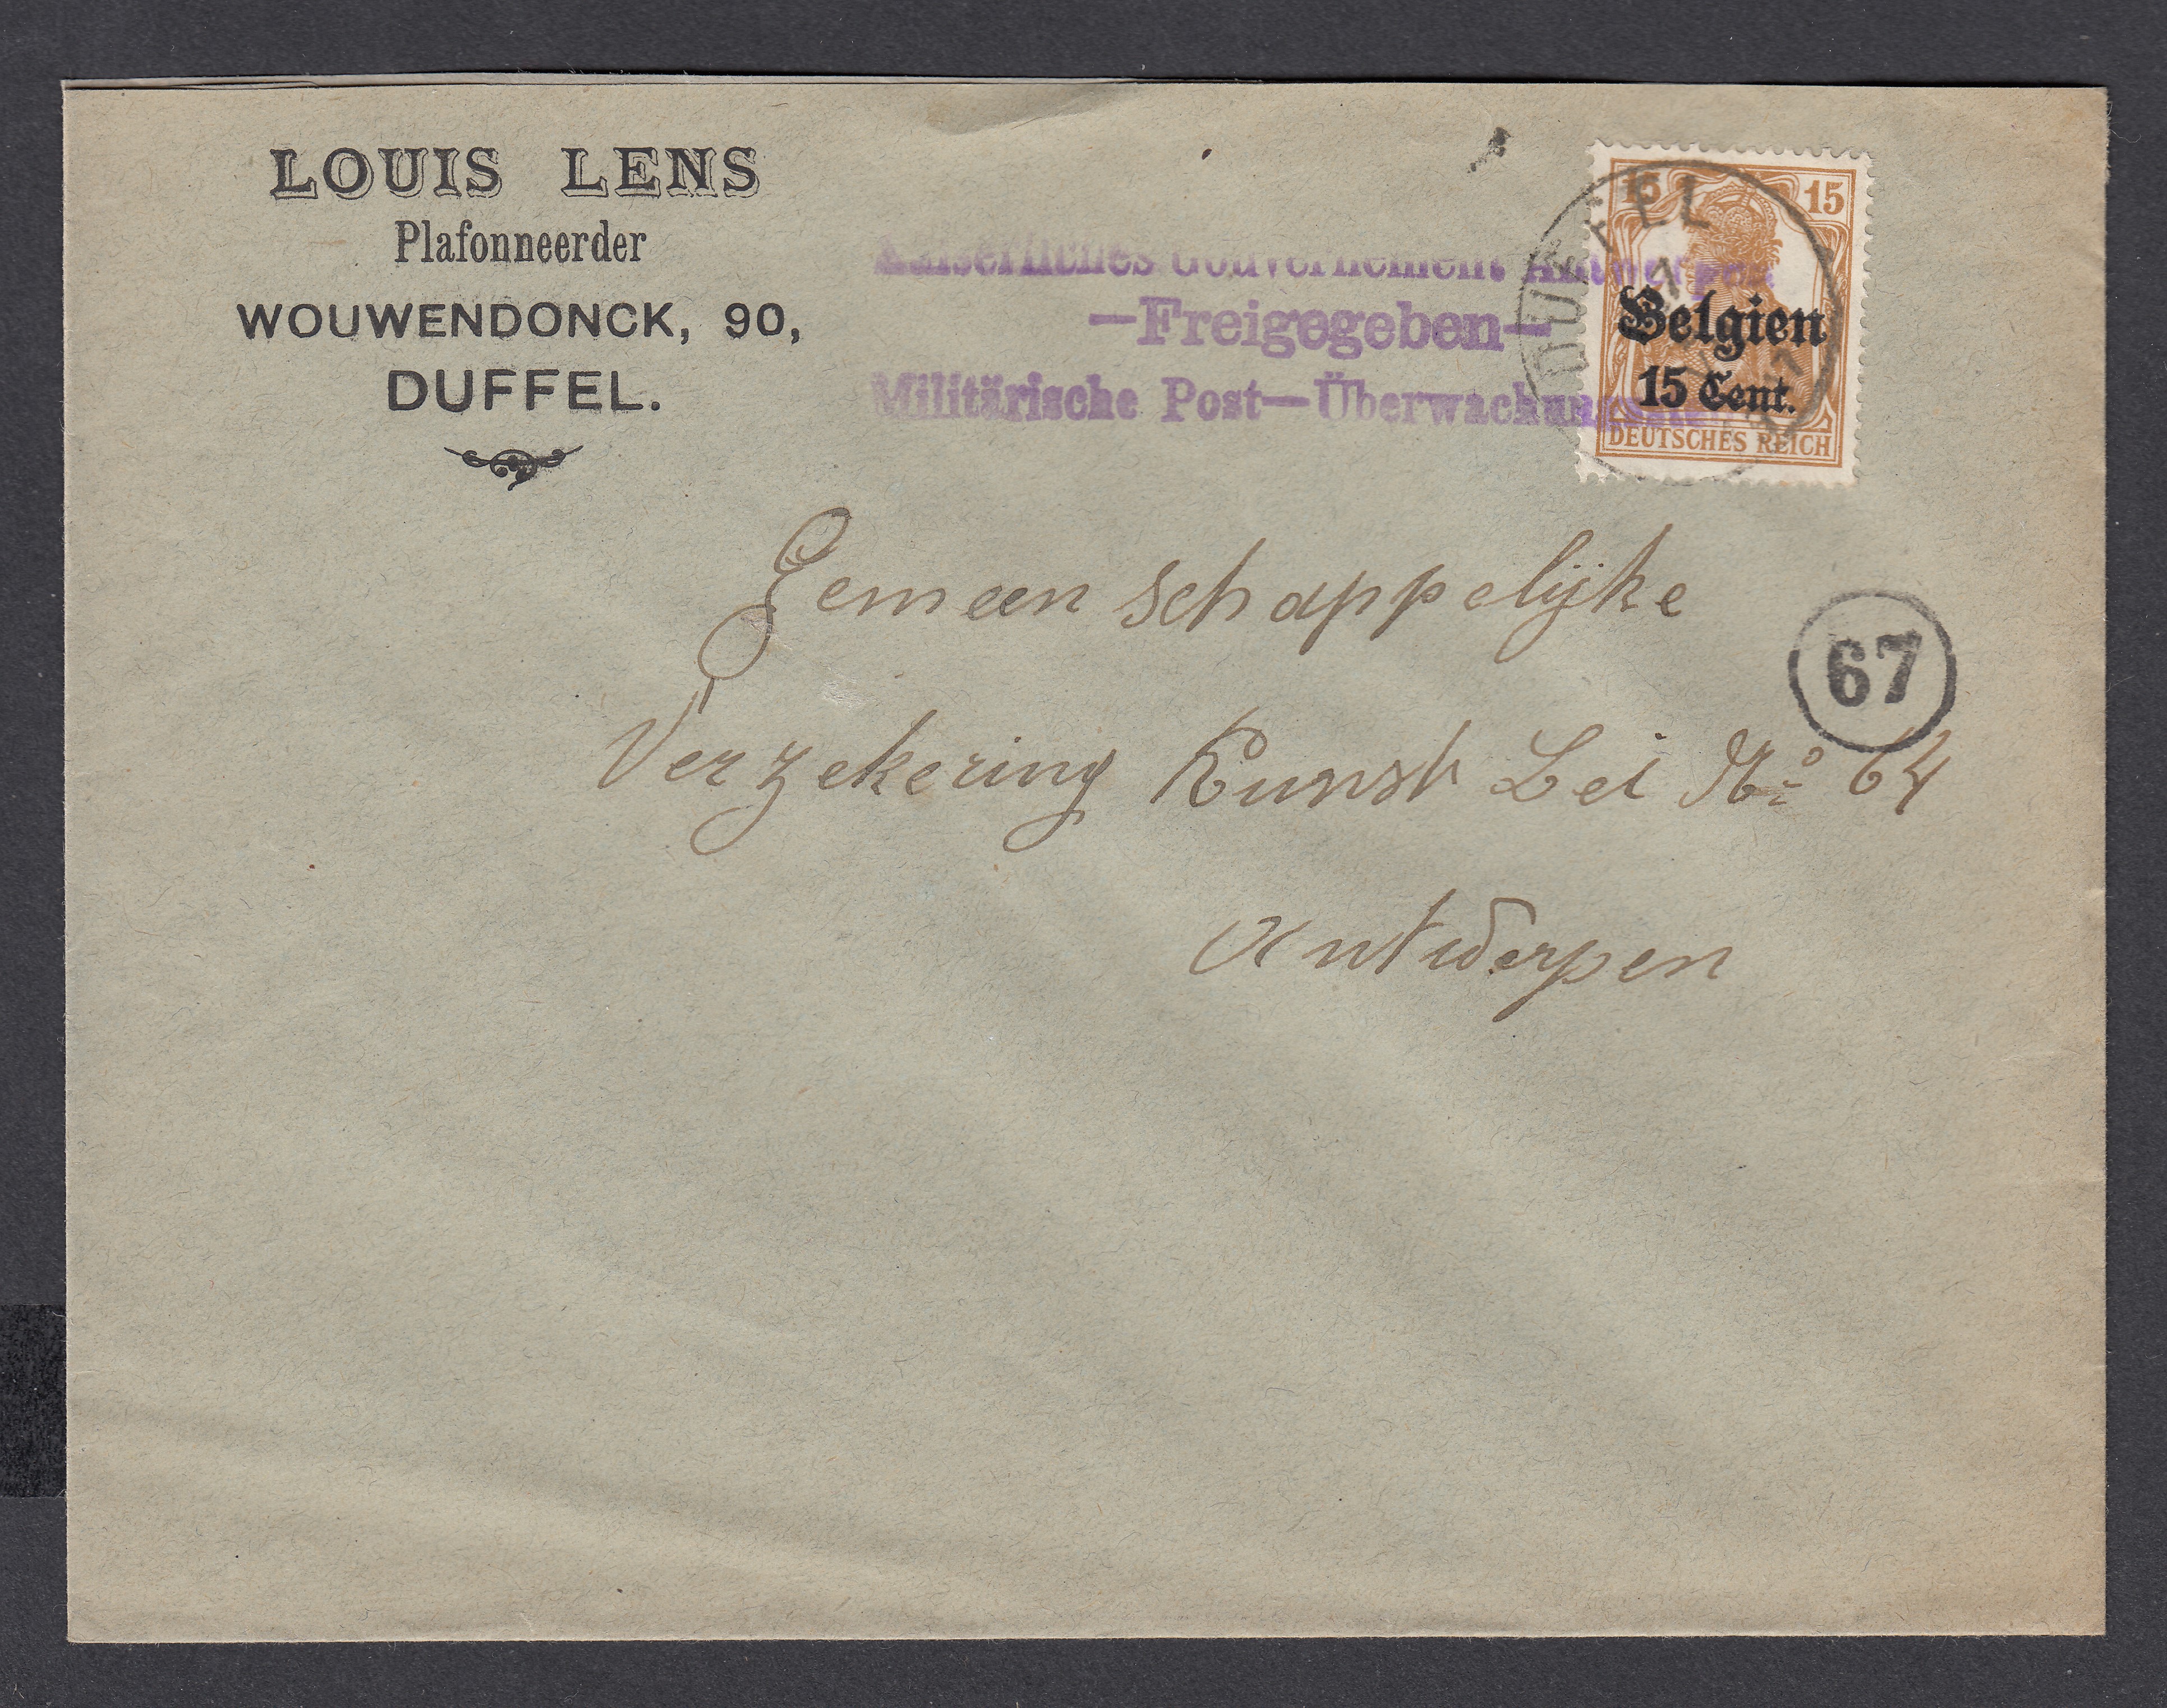 LOUIS LENS
Plafonneerder
WOUWENDONCK, 90,
DUFFEL.
Kaiserliches Gouvernement Antwerpen
—Freigegeben—
Militärische Post—Überwachungsstelle
DUFFEL
15 15
Belgien
15 Cent.
DEUTSCHES REICH
Gemeenschappelijke
67
Verzekering Kunst Lei No 64
Antwerpen